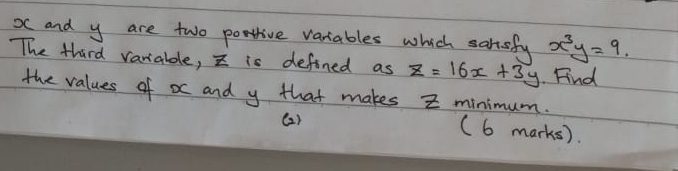 x and y are two positive variables which satisfy x³y = 9.
The third variable, z is defined as z = 16x + 3y. Find
the values of x and y that makes z minimum.
(2) (6 marks).